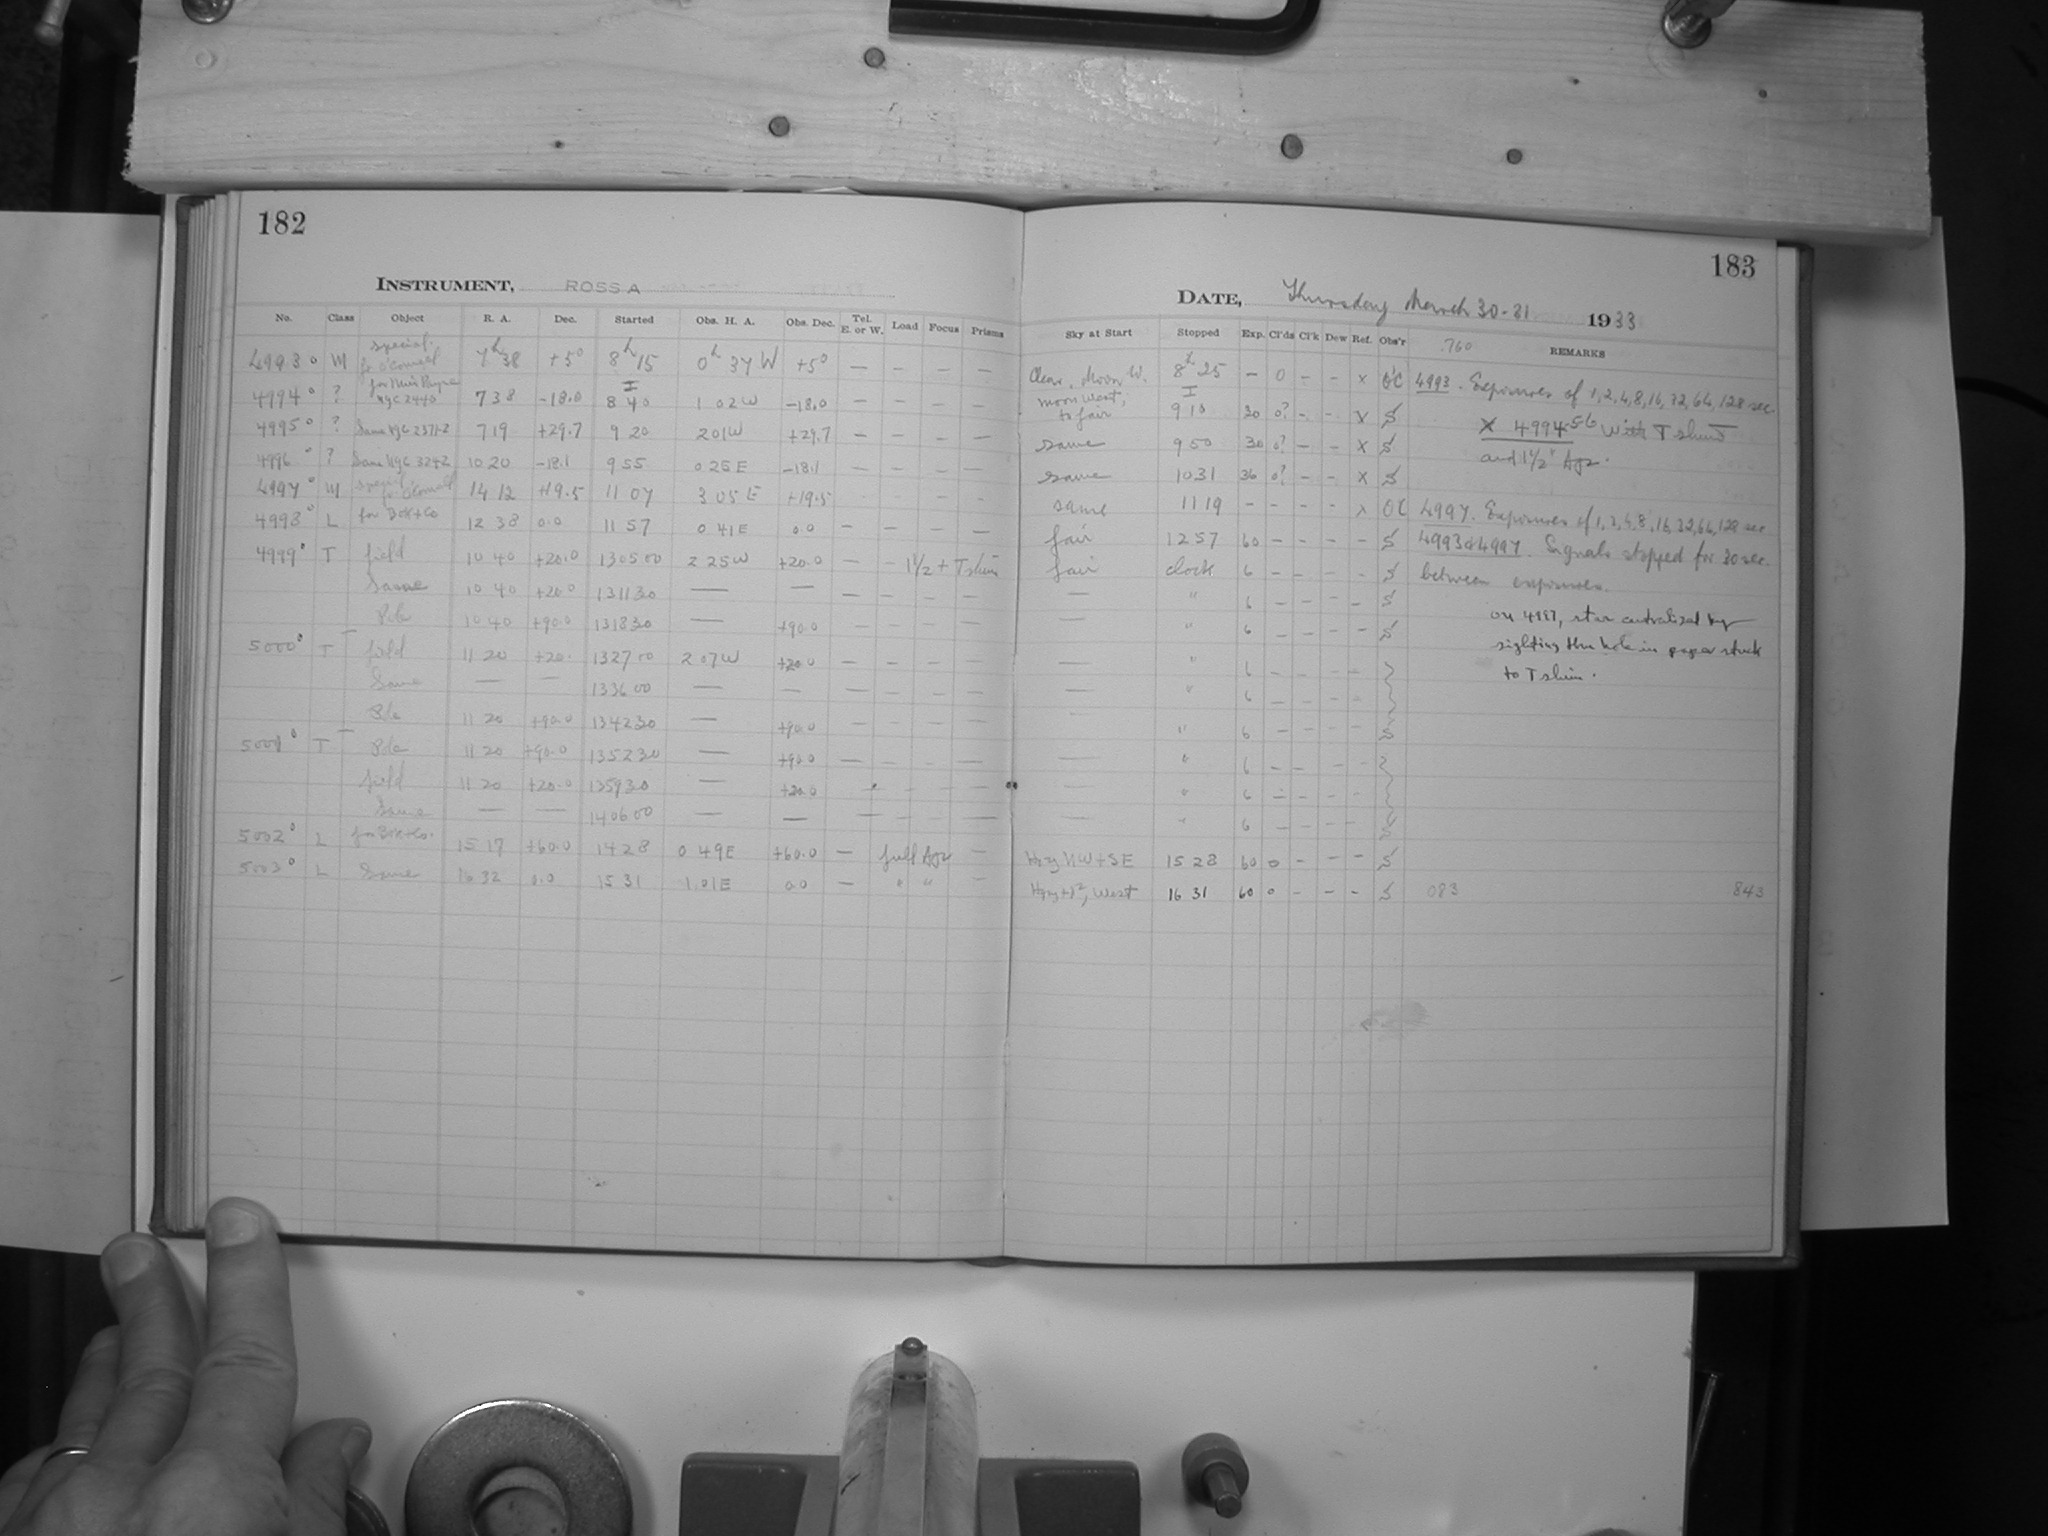 182
INSTRUMENT, ROSS A
No. Class Object R. A. Dec. Started Obs. H. A. Obs. Dec. Tel. E. or W. Load Focus Prisms
4993° M special for O'Connell 7h 38 +5° 8h 15 0h 37 W +5° — — — — —
4994° ? for Miss Payne NGC 2440 7 38 -18.0 8 40 1 02 W -18.0 — — — — —
4995° ? Same NGC 2371-2 7 19 +29.7 9 20 2 01 W +29.7 — — — — —
4996° ? Same NGC 3242 10 20 -18.1 9 55 0 26 E -18.1 — — — — —
4997° M special for O'Connell 14 12 +19.5 11 07 3 05 E +19.5
4998° L for Bok + Co 12 38 0.0 11 57 0 41 E 0.0 — — — — —
4999° T field 10 40 +20.0 13 05 00 2 25 W +20.0 — — 1½ + T shim
Same 10 40 +20.0 13 11 30 — — — — — — —
Pole 10 40 +90.0 13 18 30 — +90.0 — — — —
5000° T field 11 20 +20. 13 27 00 2 07 W +20.0 — — — — —
Same — — 13 36 00 — — — — — — —
Pole 11 20 +90.0 13 42 30 — +90.0 — — — — —
5001° T Pole 11 20 +90.0 13 52 30 — +90.0 — — — — —
field 11 20 +20.0 13 59 30 — +20.0
Same — — 14 06 00 — — — — — — —
5002° L for Bok + Co. 15 17 +60.0 14 28 0 49 E +60.0 — full Apr —
5003° L Same 16 32 0.0 15 31 1.01 E 0.0 — " " —
183
DATE, Thursday March 30-31 1933
Sky at Start Stopped Exp. Cl'ds Cl'k Dew Ref. Obs'r .760 REMARKS
Clear, Moon W. 8h 25 — 0 — — x O'C 4993. Exposures of 1,2,4,8,16,32,64,128 sec.
moon West, to fair 9 10 30 0? — — x S
X 4994-5-6 with T shim
same 9 50 30 0? — — x S
and 1½" Apr.
same 10 31 36 0? — — x S
same 11 19 — — — — x OC 4997. Exposures of 1,2,4,8,16,32,64,128 sec
fair 12 57 60 — — — — S 4993 & 4997. Signals stopped for 30 sec.
fair clock 6 — — — — S between exposures.
— " 6 — — — — S
on 4997, star centralized by
— " 6 — — — — S
sighting thru hole in paper stuck
— " 6 — — — —
to T shim.
— " 6 — — — —
— " 6 — — — — S
— " 6 — — — —
— " 6 — — — —
— " 6 — — — — S
Hazy NW + SE 15 28 60 0 — — — S
West 16 31 60 0 — — — S 083 843